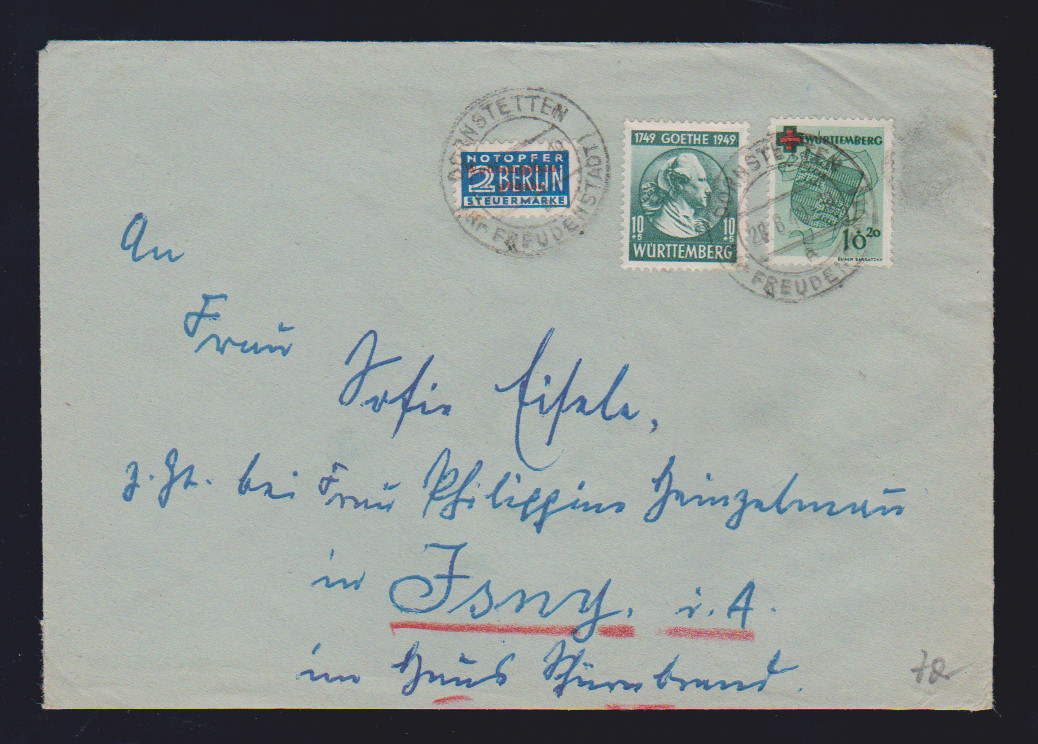 DORNSTETTEN
Kr. FREUDENSTADT
NOTOPFER
2 BERLIN
STEUERMARKE
1749 GOETHE 1949
10 +5 10 +5
WÜRTTEMBERG
WÜRTTEMBERG
10 + 20
DORNSTETTEN
20.6.
Kr. FREUDEN
An
Frau
Sofie Eisele,
z. Zt. bei Frau Philippine Heinzelmann
in Isny. i. A.
im Haus Schürnbrand.